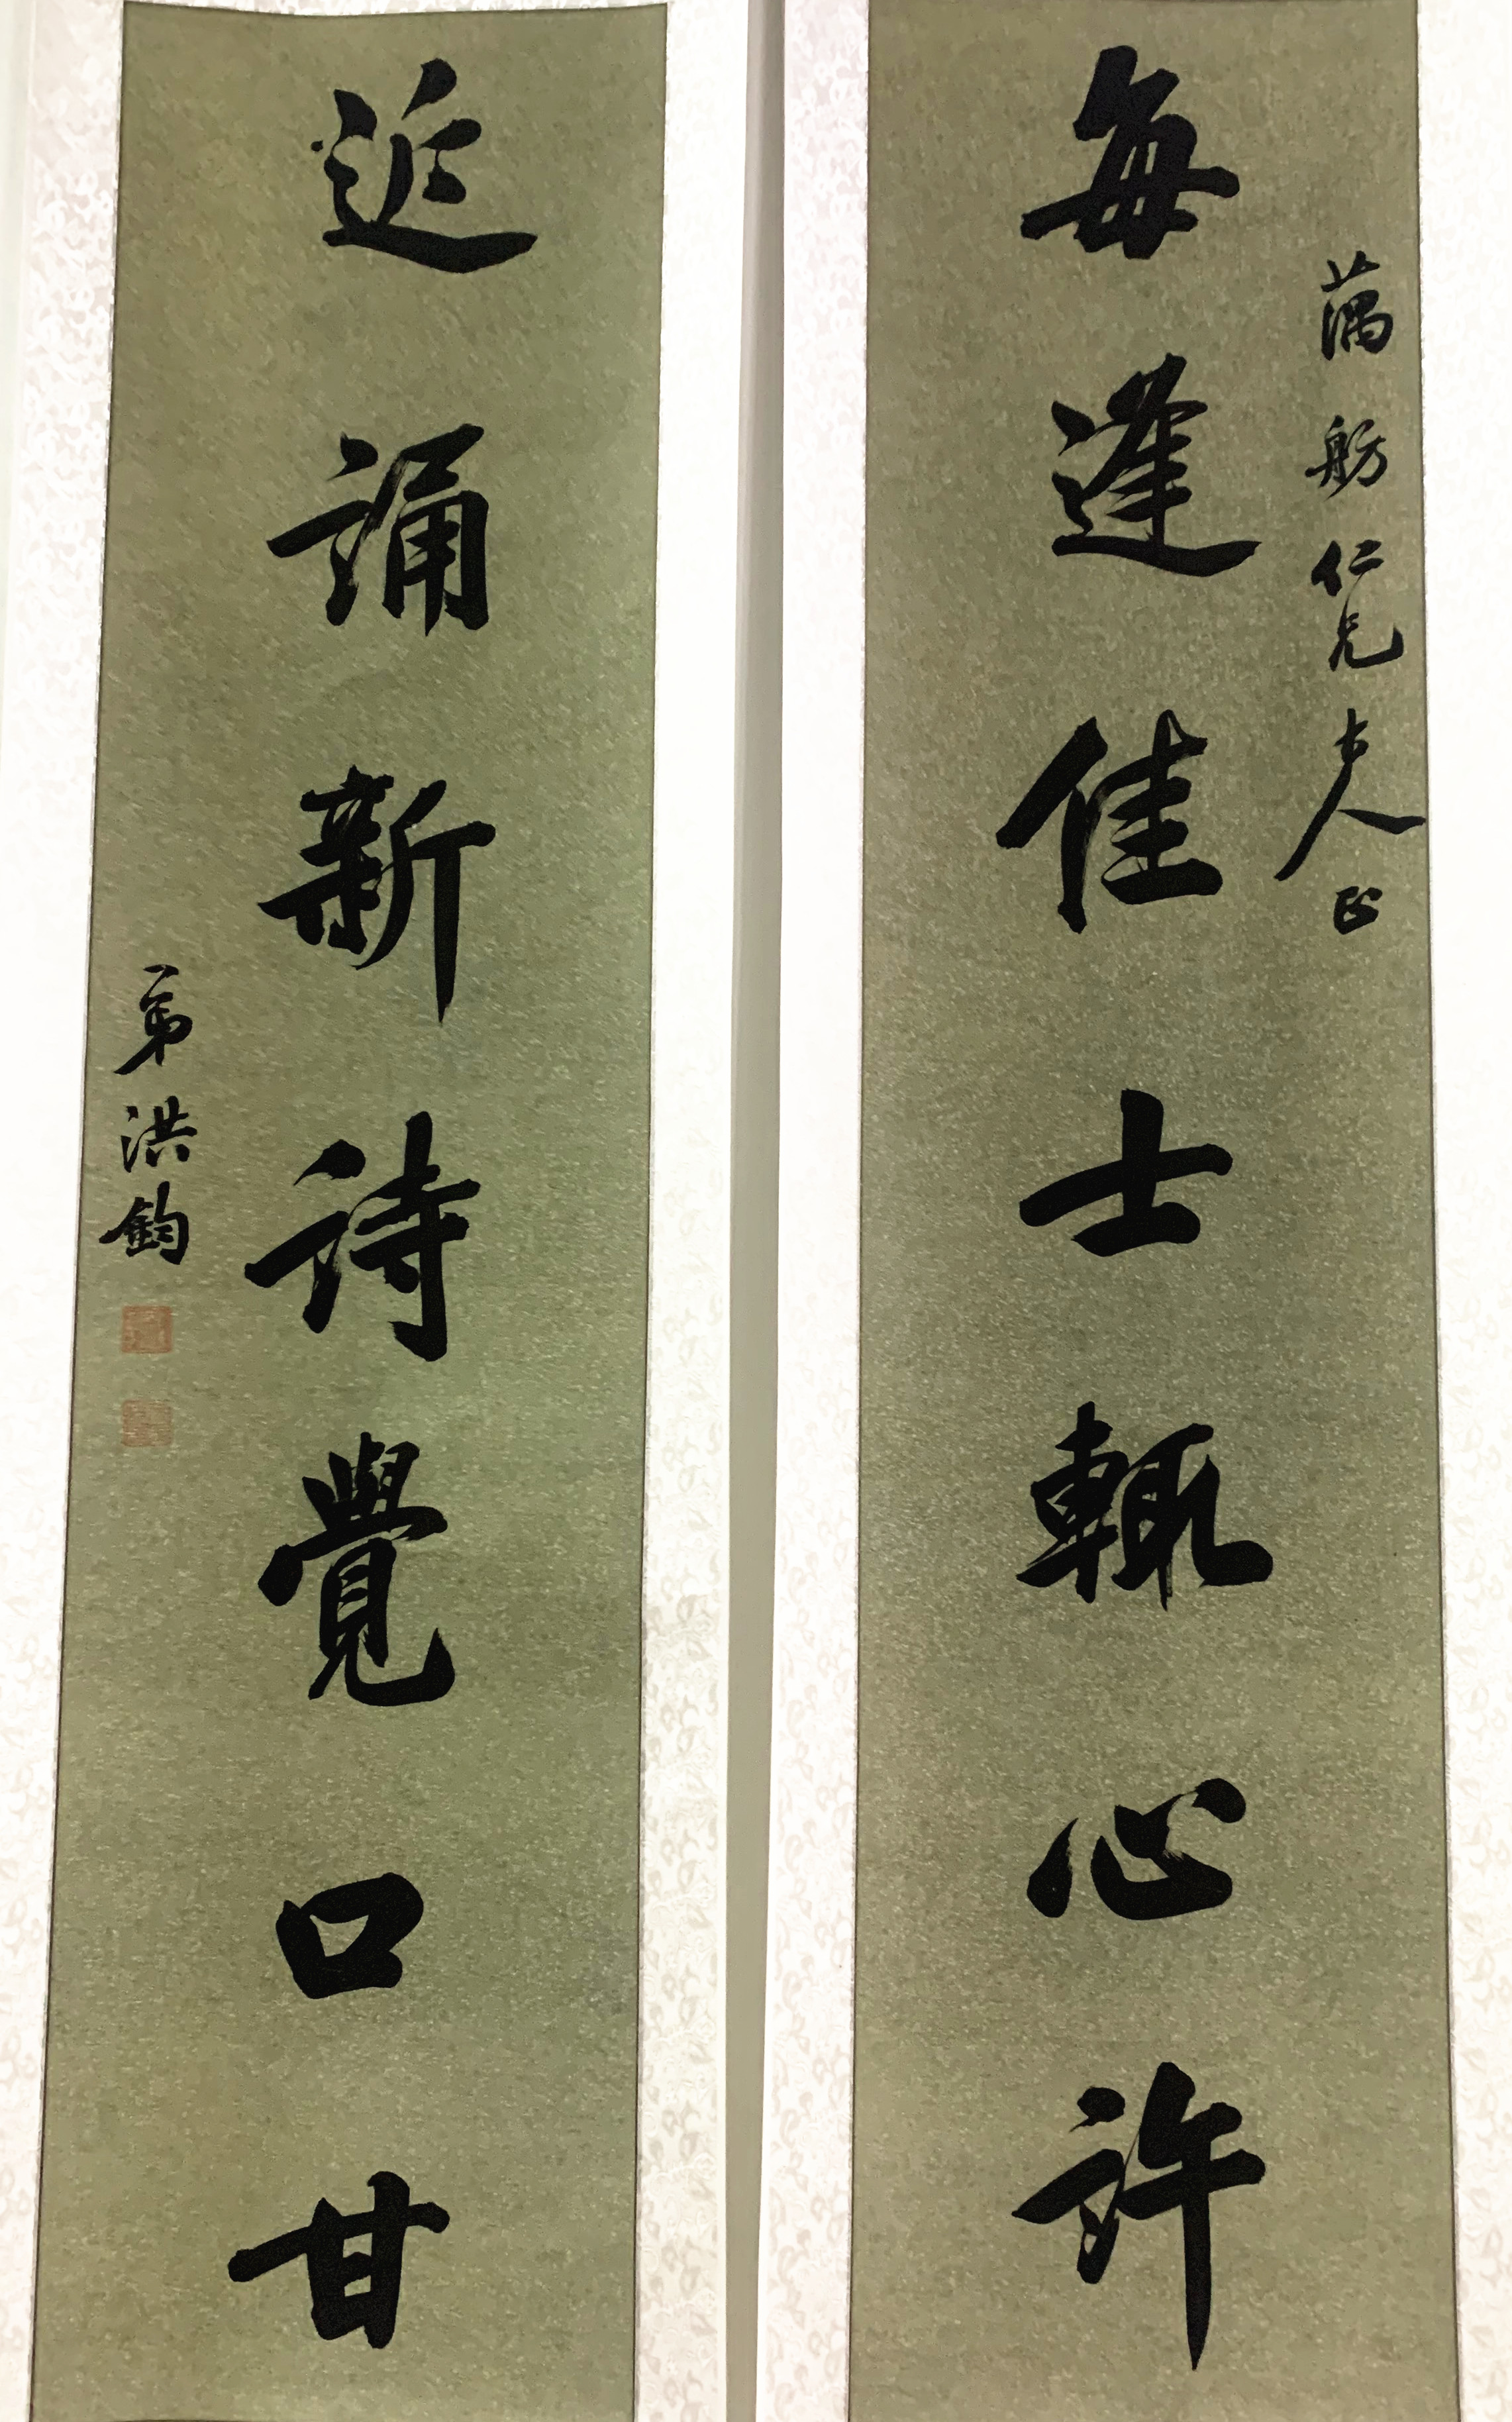 藕舫仁兄大人正
每逢佳士輒心許
近誦新詩覺口甘
弟洪鈞